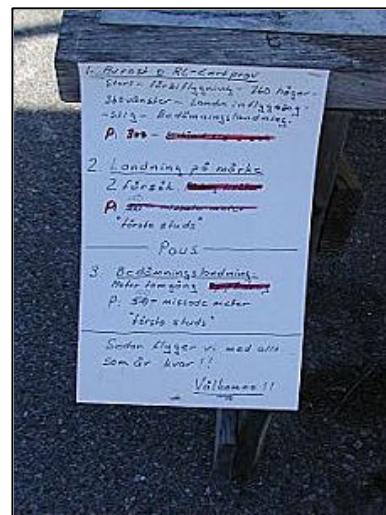 1. Avrost o RC-Certprov
Start - förbiflygning - 360 höger -
360 vänster - Landa inflygning
- Bedömningslandning.
P: 300 -
2. Landning på märke
2 försök
P: 50 - missode meter
"första studs"
Paus
3. Bedömningslandning.
Motor tomgång
P: 50 - missode meter
"första studs"
Sedan flyger vi med allt
som är kvar!!
Välkomna !!